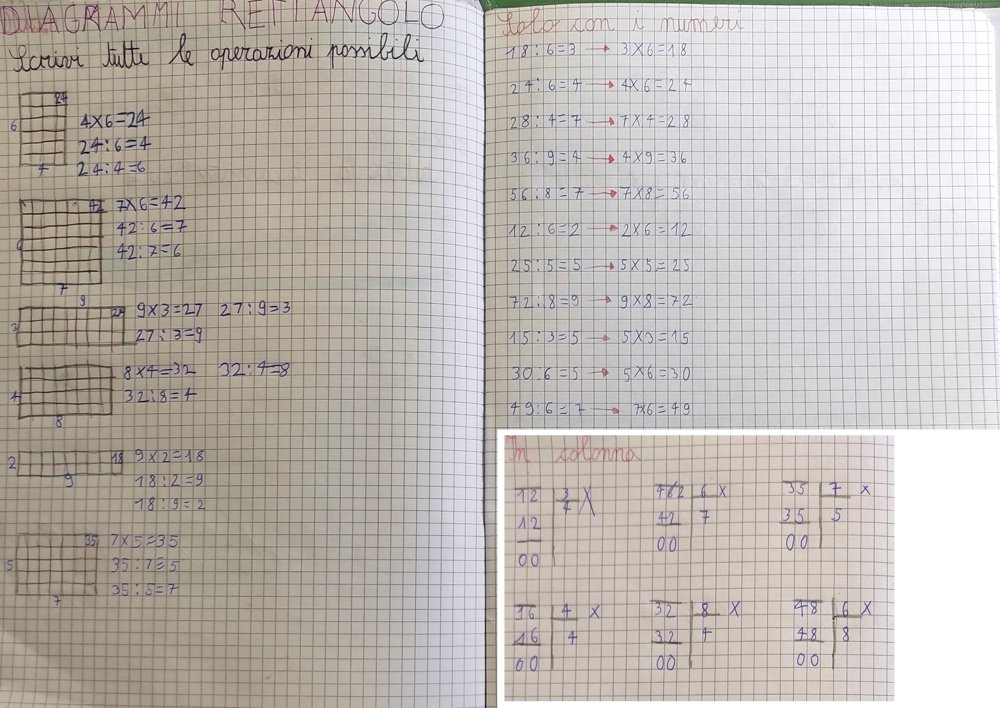 DIAGRAMMI RETTANGOLO
Scrivi tutte le operazioni possibili
24
6
4
4×6=24
24:6=4
24:4=6
42
6
7
7×6=42
42:6=7
42:7=6
9
27
3
9×3=27 27:9=3
27:3=9
4
8
8×4=32 32:4=8
32:8=4
2
18
9
9×2=18
18:2=9
18:9=2
35
5
7
7×5=35
35:7=5
35:5=7
Solo con i numeri
18:6=3 → 3×6=18
24:6=4 → 4×6=24
28:4=7 → 7×4=28
36:9=4 → 4×9=36
56:8=7 → 7×8=56
12:6=2 → 2×6=12
25:5=5 → 5×5=25
72:8=9 → 9×8=72
15:3=5 → 5×3=15
30:6=5 → 5×6=30
49:6=7 → 7×6=49
In colonna
12 3 X
12 4
00
42 6 X
42 7
00
35 7 X
35 5
00
16 4 X
16 4
00
32 8 X
32 4
00
48 6 X
48 8
00